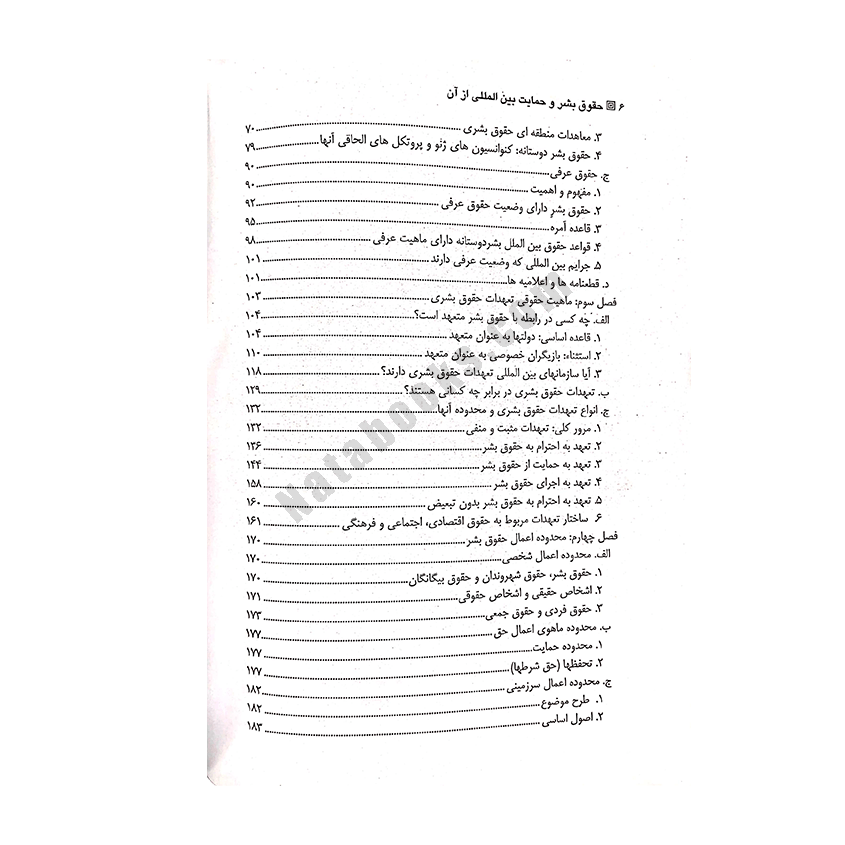 ۶ حقوق بشر و حمایت بین المللی از آن
۳. معاهدات منطقه ای حقوق بشری ۷۰
۴. حقوق بشر دوستانه: کنوانسیون های ژنو و پروتکل های الحاقی آنها ۷۹
ج. حقوق عرفی ۹۰
۱. مفهوم و اهمیت ۹۰
۲. حقوق بشر دارای وضعیت حقوق عرفی ۹۲
۳. قاعده آمره ۹۵
۴. قواعد حقوق بین الملل بشردوستانه دارای ماهیت عرفی ۹۸
۵. جرایم بین المللی که وضعیت عرفی دارند ۱۰۱
د. قطعنامه ها و اعلامیه ها ۱۰۱
فصل سوم: ماهیت حقوقی تعهدات حقوق بشری ۱۰۳
الف. چه کسی در رابطه با حقوق بشر متعهد است؟ ۱۰۴
۱. قاعده اساسی: دولتها به عنوان متعهد ۱۰۴
۲. استثناء: بازیگران خصوصی به عنوان متعهد ۱۱۰
۳. آیا سازمانهای بین المللی تعهدات حقوق بشری دارند؟ ۱۱۸
ب. تعهدات حقوق بشری در برابر چه کسانی هستند؟ ۱۲۹
ج. انواع تعهدات حقوق بشری و محدوده آنها ۱۳۲
۱. مرور کلی: تعهدات مثبت و منفی ۱۳۲
۲. تعهد به احترام به حقوق بشر ۱۳۶
۳. تعهد به حمایت از حقوق بشر ۱۴۴
۴. تعهد به اجرای حقوق بشر ۱۵۸
۵. تعهد به احترام به حقوق بشر بدون تبعیض ۱۶۰
۶. ساختار تعهدات مربوط به حقوق اقتصادی، اجتماعی و فرهنگی ۱۶۱
فصل چهارم: محدوده اعمال حقوق بشر ۱۷۰
الف. محدوده اعمال شخصی ۱۷۰
۱. حقوق بشر، حقوق شهروندان و حقوق بیگانگان ۱۷۰
۲. اشخاص حقیقی و اشخاص حقوقی ۱۷۱
۳. حقوق فردی و حقوق جمعی ۱۷۳
ب. محدوده ماهوی اعمال حق ۱۷۷
۱. محدوده حمایت ۱۷۷
۲. تحفظها (حق شرطها) ۱۷۷
ج. محدوده اعمال سرزمینی ۱۸۲
۱. طرح موضوع ۱۸۲
۲. اصول اساسی ۱۸۳
Natabooks.com